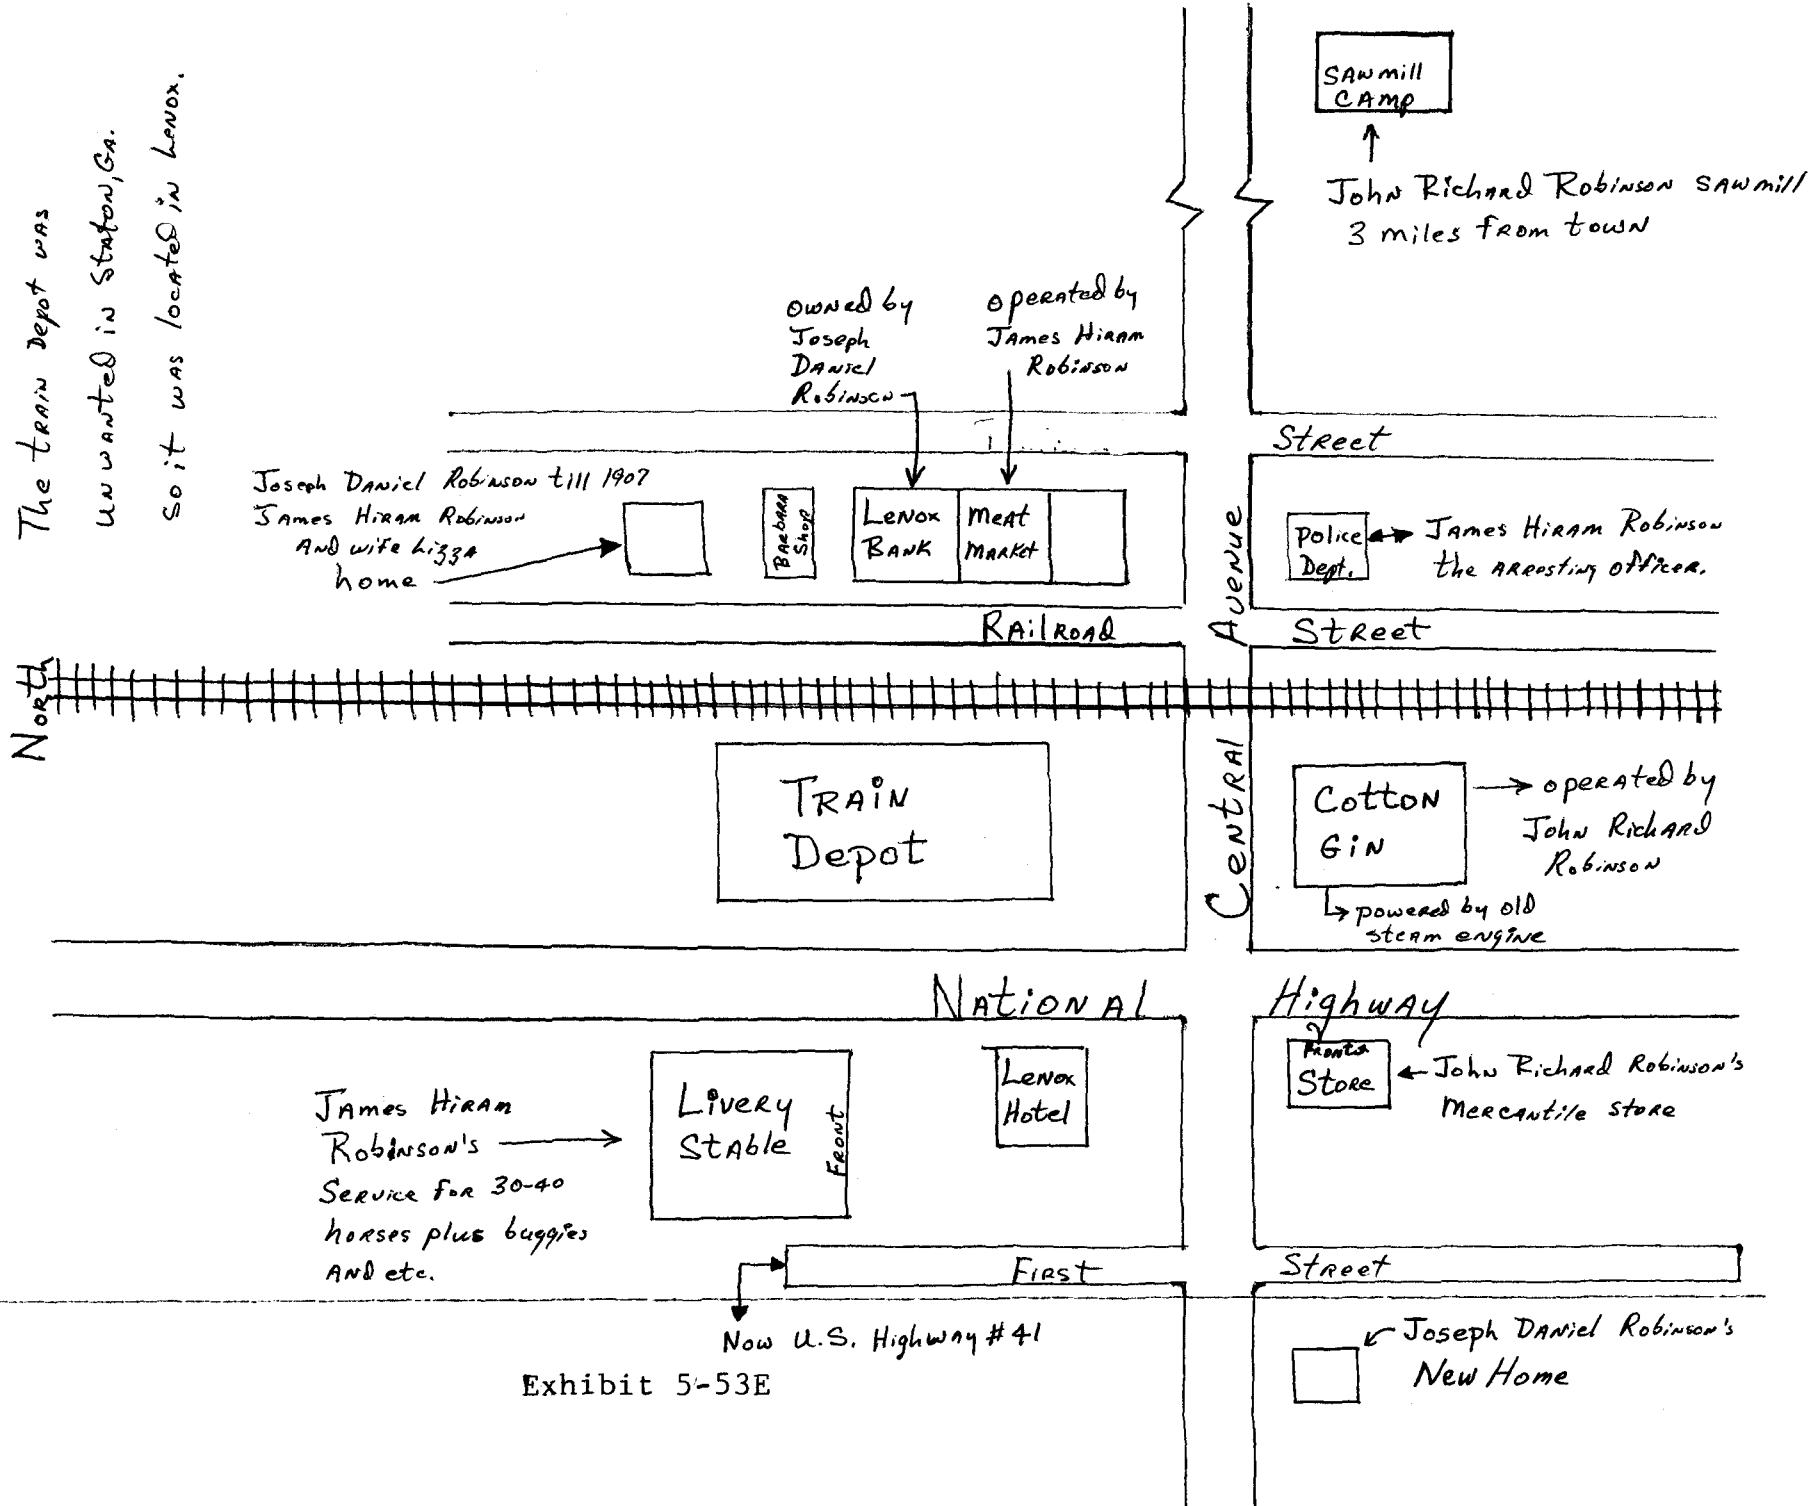 The train Depot was
unwanted in Staton, Ga.
So it was located in Lenox.
Sawmill
Camp
John Richard Robinson sawmill
3 miles from town
owned by
Joseph
Daniel
Robinson
operated by
James Hiram
Robinson
Street
Joseph Daniel Robinson till 1907
James Hiram Robinson
And wife Lizza
home
Barbara
Shop
Lenox
Bank
Meat
Market
Police
Dept.
James Hiram Robinson
the arresting officer.
Railroad Street
North
Central Avenue
Train
Depot
Cotton
Gin
operated by
John Richard
Robinson
powered by old
steam engine
National Highway
James Hiram
Robinson's
Service for 30-40
horses plus buggies
And etc.
Livery
Stable
Front
Lenox
Hotel
Front
Store
John Richard Robinson's
Mercantile store
First Street
Now U.S. Highway #41
Joseph Daniel Robinson's
New Home
Exhibit 5-53E